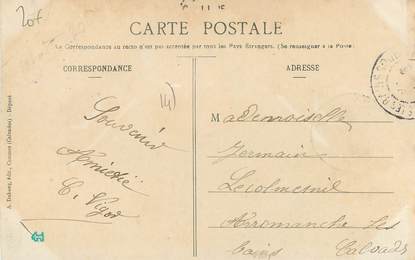 20f
CARTE POSTALE
La Correspondance au recto n'est pas acceptée par tous les Pays Étrangers. (Se renseigner à la Poste)
CORRESPONDANCE
ADRESSE
14
Souvenir
Amitié
C. Vigor
Mademoiselle
Germain
Arromanches les
bains Calvados
A. Dubosq, édit.,
(Calvados) - Déposé